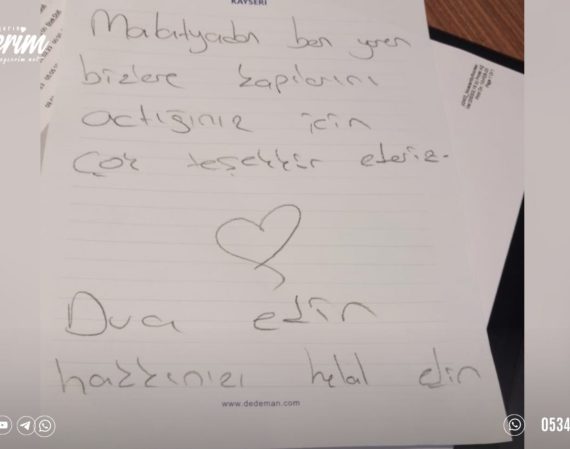 KAYSERİ
Malatyadan ben yoren
bizlere kapılarını
actığınız için
Çok teşekkir ederiz.
Dua edin
hakkınızı helal edin
www.dedeman.com
0534